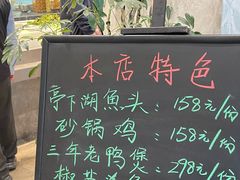 本店特色
亭下湖魚头：158元/份
砂锅鸡：158元/份
三年老鸭煲：298元/份
椒盐